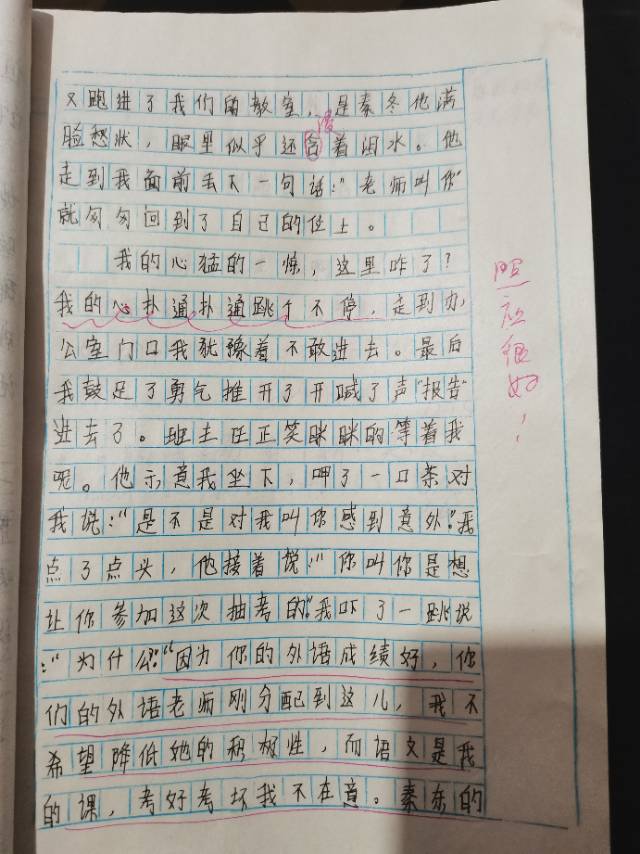 又跑进了我们的教室，是秦冬他满
脸愁状，眼里似乎还含着泪水。他
走到我面前丢下一句话：“老师叫你”
就匆匆回到了自己的位上。
我的心猛的一惊，这里咋了？
我的心扑通扑通跳个不停，走到办
公室门口我犹豫着不敢进去。最后
我鼓足了勇气推开了开喊了声“报告”
进去了。班主任正笑眯眯的等着我
呢。他示意我坐下，呷了一口茶对
我说：“是不是对我叫你感到意外”。我
点了点头，他接着说：“你叫你是想
让你参加这次抽考的”我吓了一跳说
：“为什么”“因为你的外语成绩好，你
们的外语老师刚分配到这儿，我不
希望降低她的积极性，而语文是我
的课，考好考坏我不在意。秦东的
照应很好！